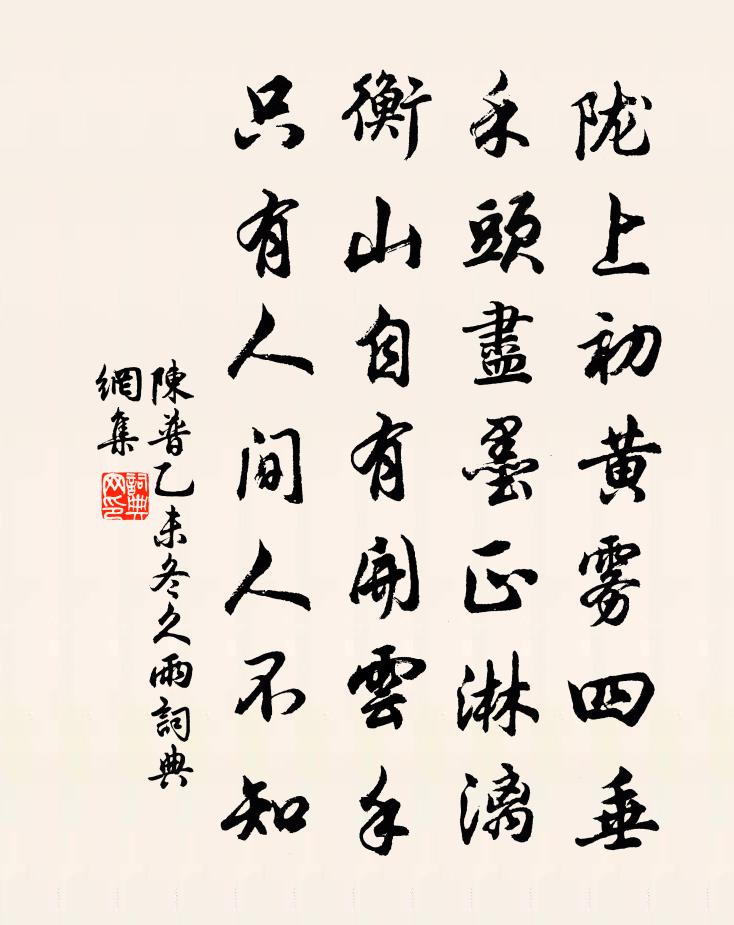 陇上初黄雾四垂
禾頭盡墨正淋漓
衡山自有開雲手
只有人間人不知
陳普乙未冬久雨詞典
網集
詞典
网印